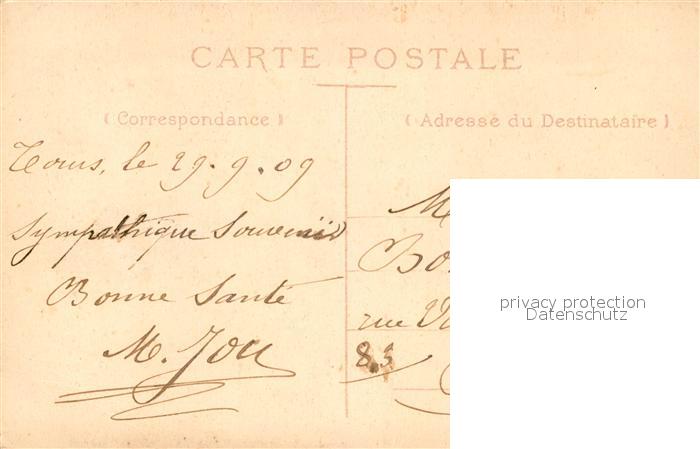 CARTE POSTALE
(Correspondance)
Tours, le 29.9.09
Sympathique Souvenir
Bonne Santé
M. Jou
(Adresse du Destinataire)
M
Bo
rue
83
privacy protection
Datenschutz